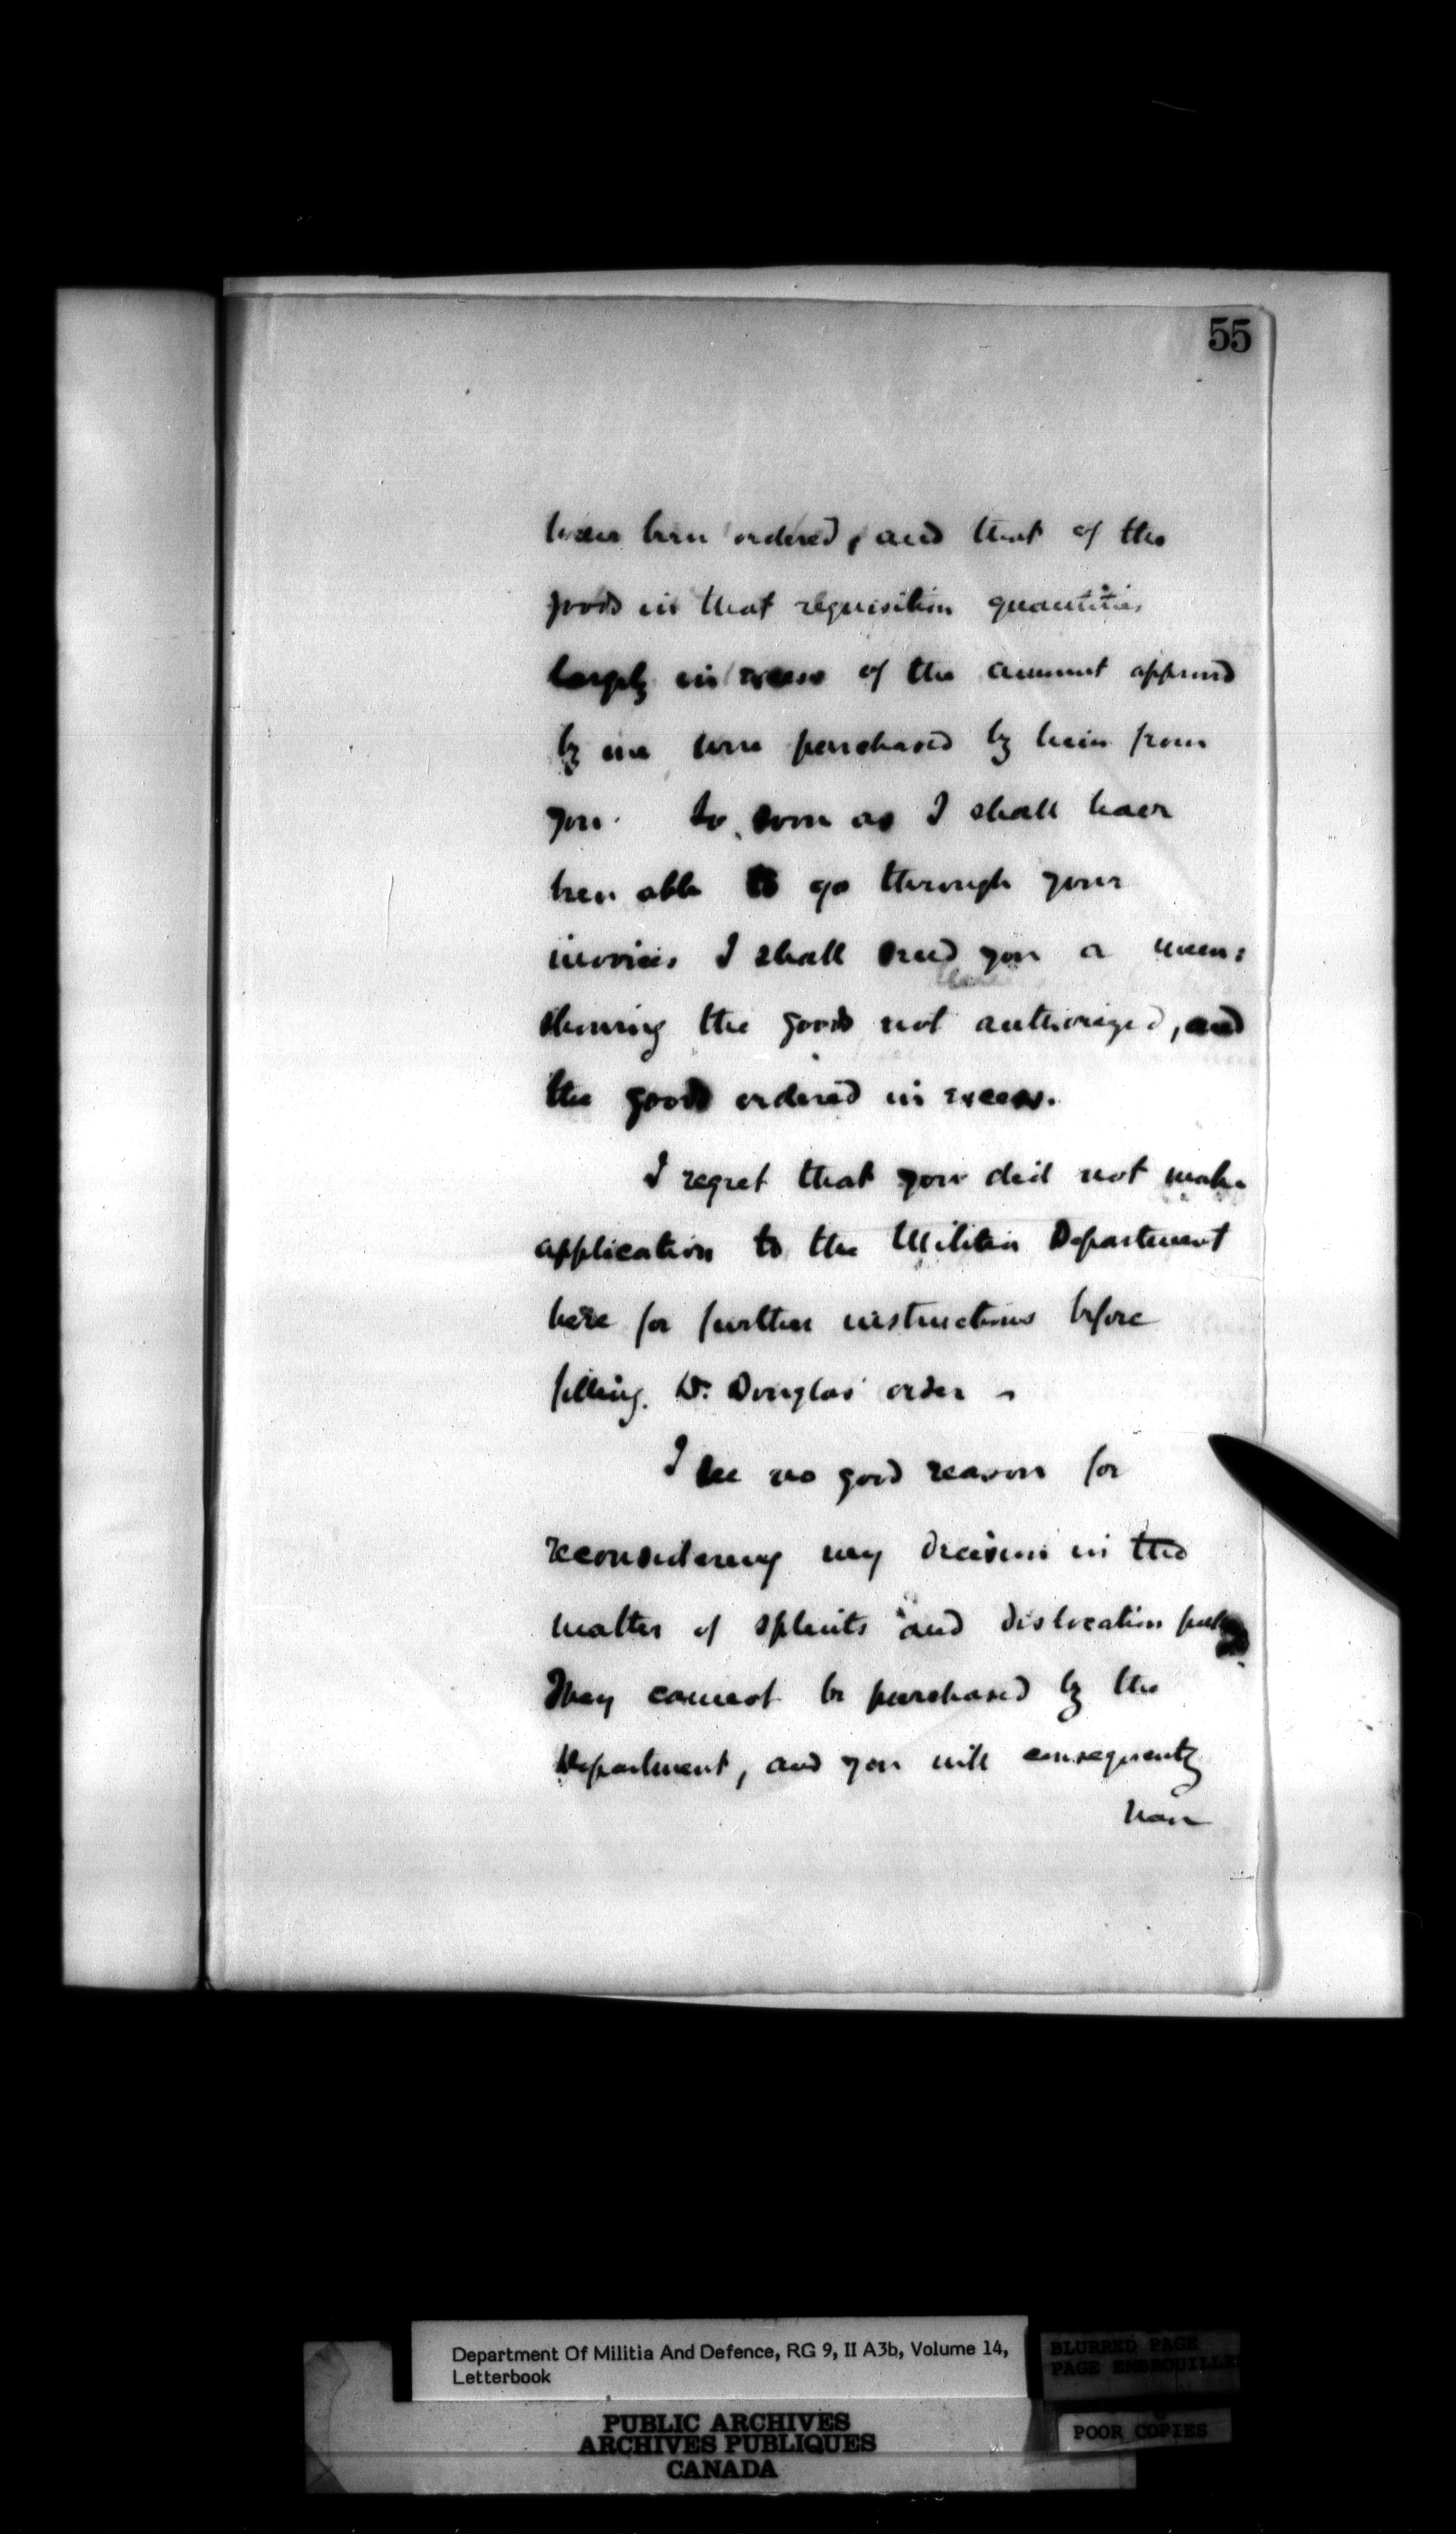 55
have been ordered, and that of the
goods in that requisition quantities
largely in excess of the amount approved
by me were purchased by him from
you. So soon as I shall have
been able to go through your
invoices I shall send you a mem:
showing the goods not authorized, and
the goods ordered in excess.
I regret that you did not make
application to the Militia Department
here for further instructions before
filling Dr. Douglas' order –
I see no good reason for
reconsidering my decision in the
matter of splints and dislocation
They cannot be purchased by the
Department, and you will consequently
have
Department Of Militia And Defence, RG 9, II A3b, Volume 14,
Letterbook
BLURRED PAGE
PAGE EMBROUILLE
PUBLIC ARCHIVES
ARCHIVES PUBLIQUES
CANADA
POOR COPIES